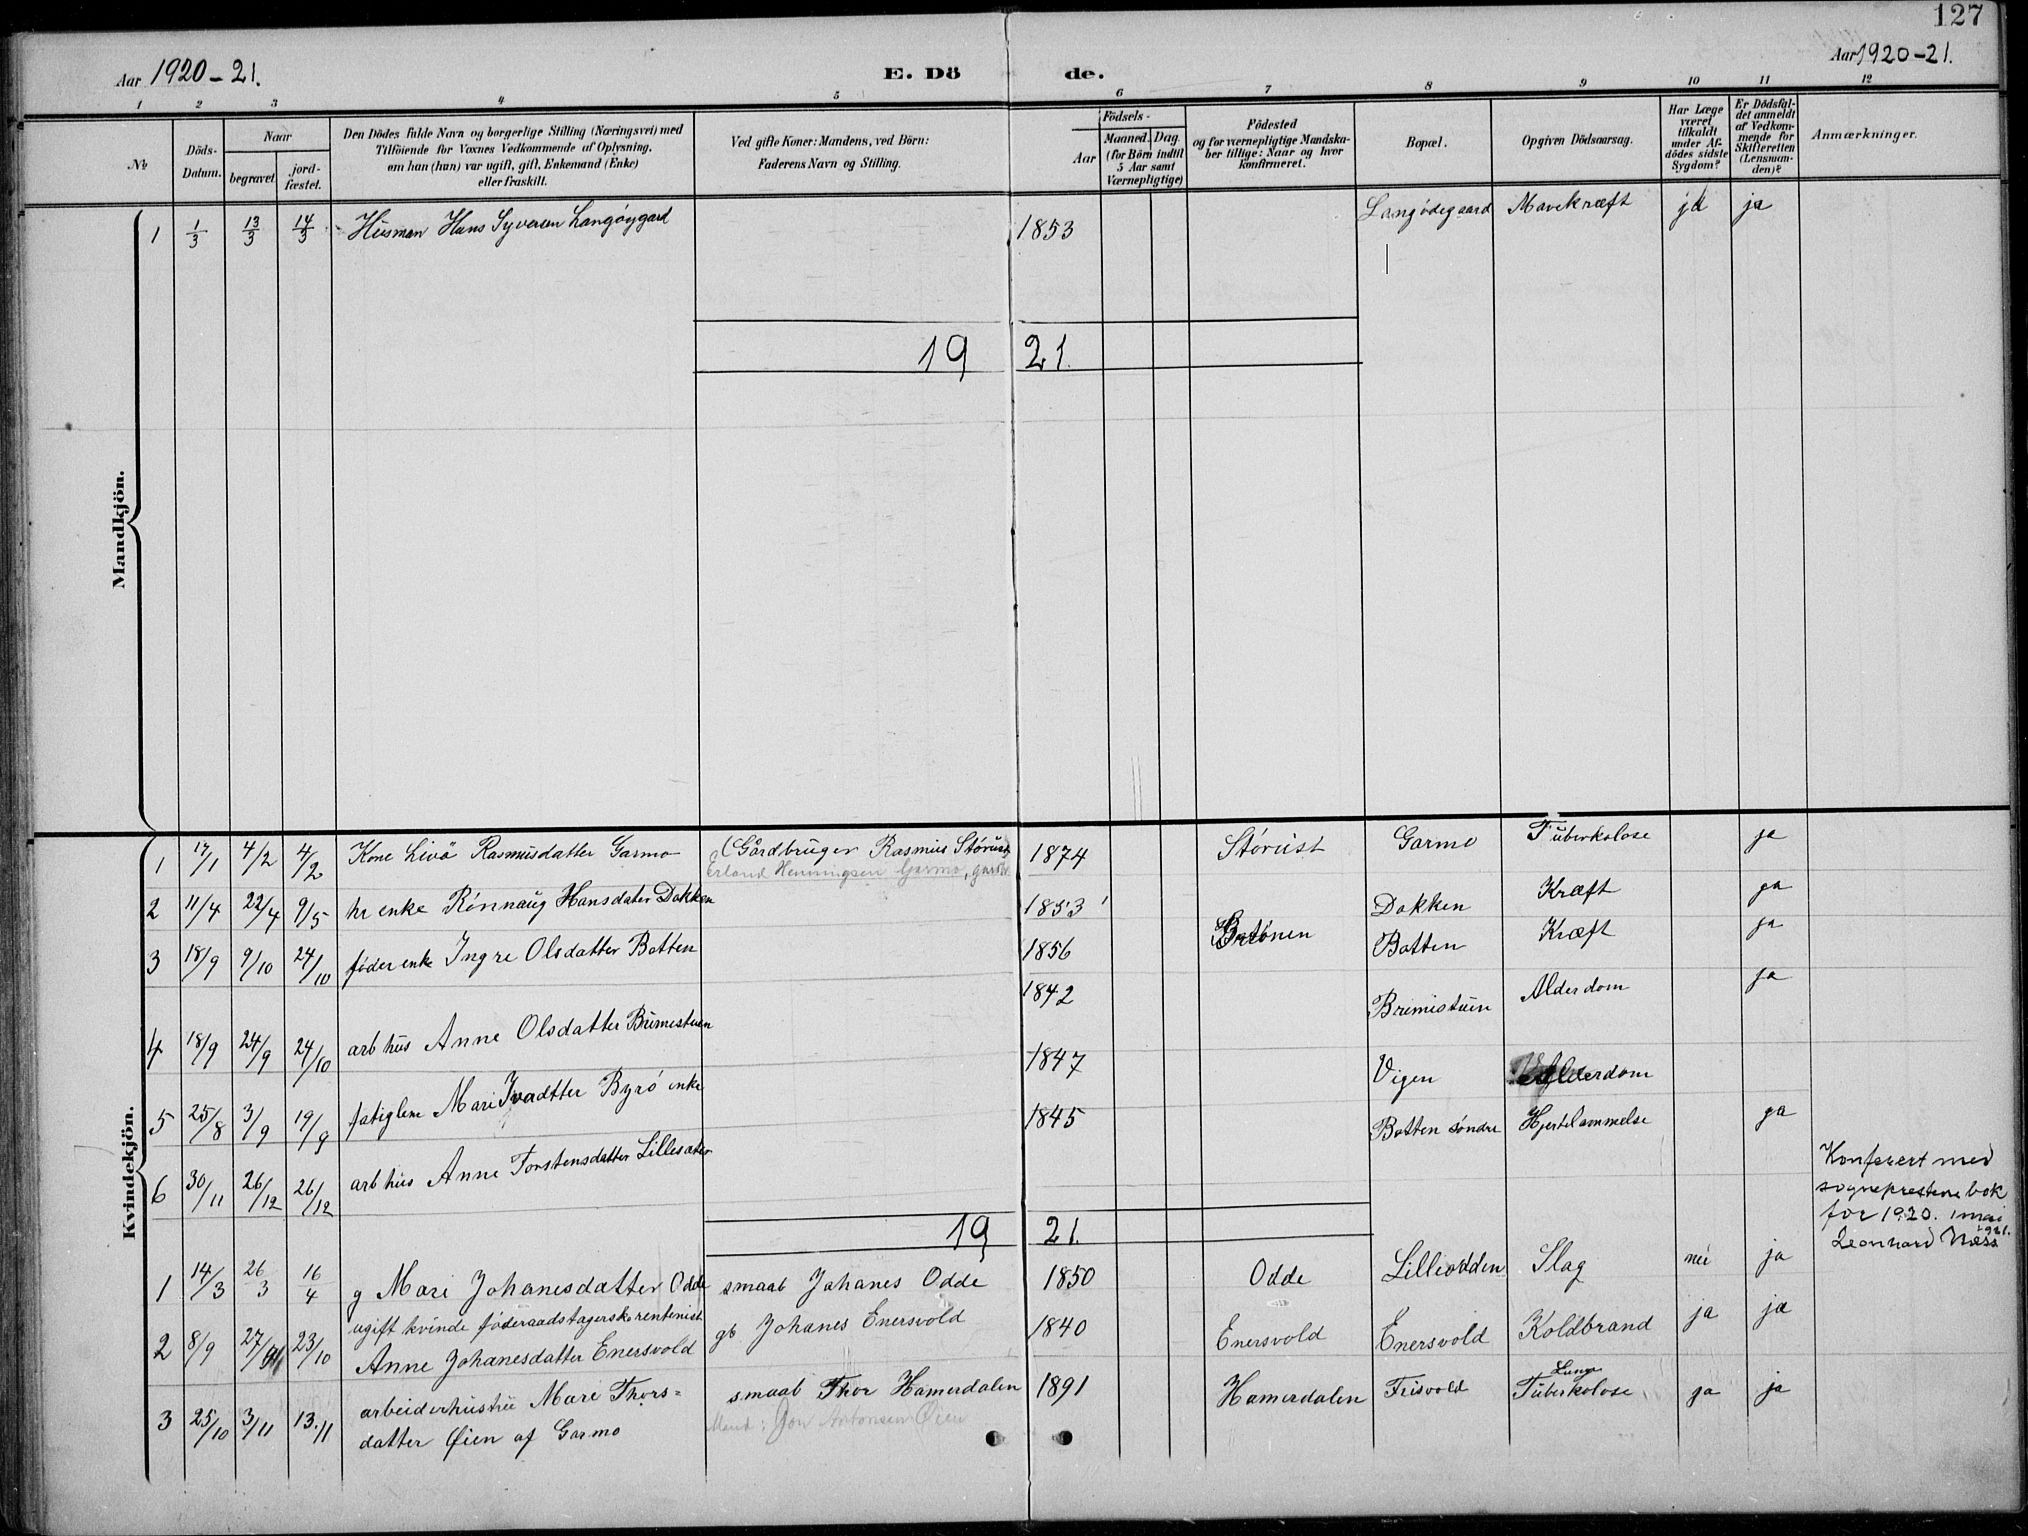 127
Aar 1920-21.
E. Dö de.
Aar 1920-21.
1 2 3 4 5 6 7 8 9 10 11 12
No.
Döds-Datum.
Naar
begravet.
jord-fæstet.
Den Dödes fulde Navn og borgerlige Stilling (Næringsvei) med
Tilföiende for Voxnes Vedkommende af Oplysning,
om han (hun) var ugift, gift, Enkemand (Enke)
eller fraskilt.
Ved gifte Koner: Mandens, ved Börn:
Faderens Navn og Stilling.
Födsels-
Aar
Maaned. Dag.
(for Börn indtil
5 Aar samt
Værnepligtige)
Födested
og for værnepligtige Mandska-
ber tillige: Naar og hvor
konfirmeret.
Bopæl.
Opgiven Dödsaarsag.
Har Læge
været
tilkaldt
under Af-
dödes sidste
Sygdom?
Er Dödsfal-
det anmeldt
af Vedkom-
mende for
Skifteretten
(Lensman-
den)?
Anmærkninger.
Mandkjön.
1 1/3 13/3 14/3 Husman Hans Syversen Langøygard 1853 Langødegaard Mavekræft ja ja
19 21.
Kvindekjön.
1 17/1 4/2 4/2 Kone Livö Rasmusdatter Garmo (Gårdbruger Rasmus Størust) 1874 Størust Garmo Tuberkolose ja
Erland Henningsen Garmo, gardbr.
2 11/4 22/4 9/5 hr enke Rönnaug Hansdater Dokken 1853 Dokken Kræft ja
3 18/9 9/10 24/10 føder enke Ingre Olsdatter Botten 1856 Botten Kræft ja
4 18/9 24/9 24/10 arb hus Anne Olsdatter Brimestuen 1842 Bremistuen Alderdom ja
5 25/8 3/9 19/9 fatiglem Mari Byrö enke 1847 Vigen Alderdom
6 30/11 26/12 26/12 arb hus Anne Torstensdatter Lillesæter 1845 Botten søndre Hjertelammelse ja
Konferert med
sogneprestens bok
for 1920. 1 mai
1921.
Leonhard Næss
19 21.
1 14/3 26/3 16/4 g Mari Johanesdatter Odde smaab Johanes Odde 1850 Odde Lilleodden Slag nei ja
2 8/9 27/9 23/10 ugift kvinde føderaadstagersk rentenist
Anne Johanesdatter Enersvold gb Johanes Enersvold 1840 Enersvold Enersvold Koldbrand ja ja
3 25/10 3/11 13.11 arbeiderhustru Mari Thors=
datter Øien af Garmo smaab Thor Hamerdalen 1891 Hamerdalen Frisvold Lunge
Tuberkolose ja ja
Mand: Jon Antonsen Øien